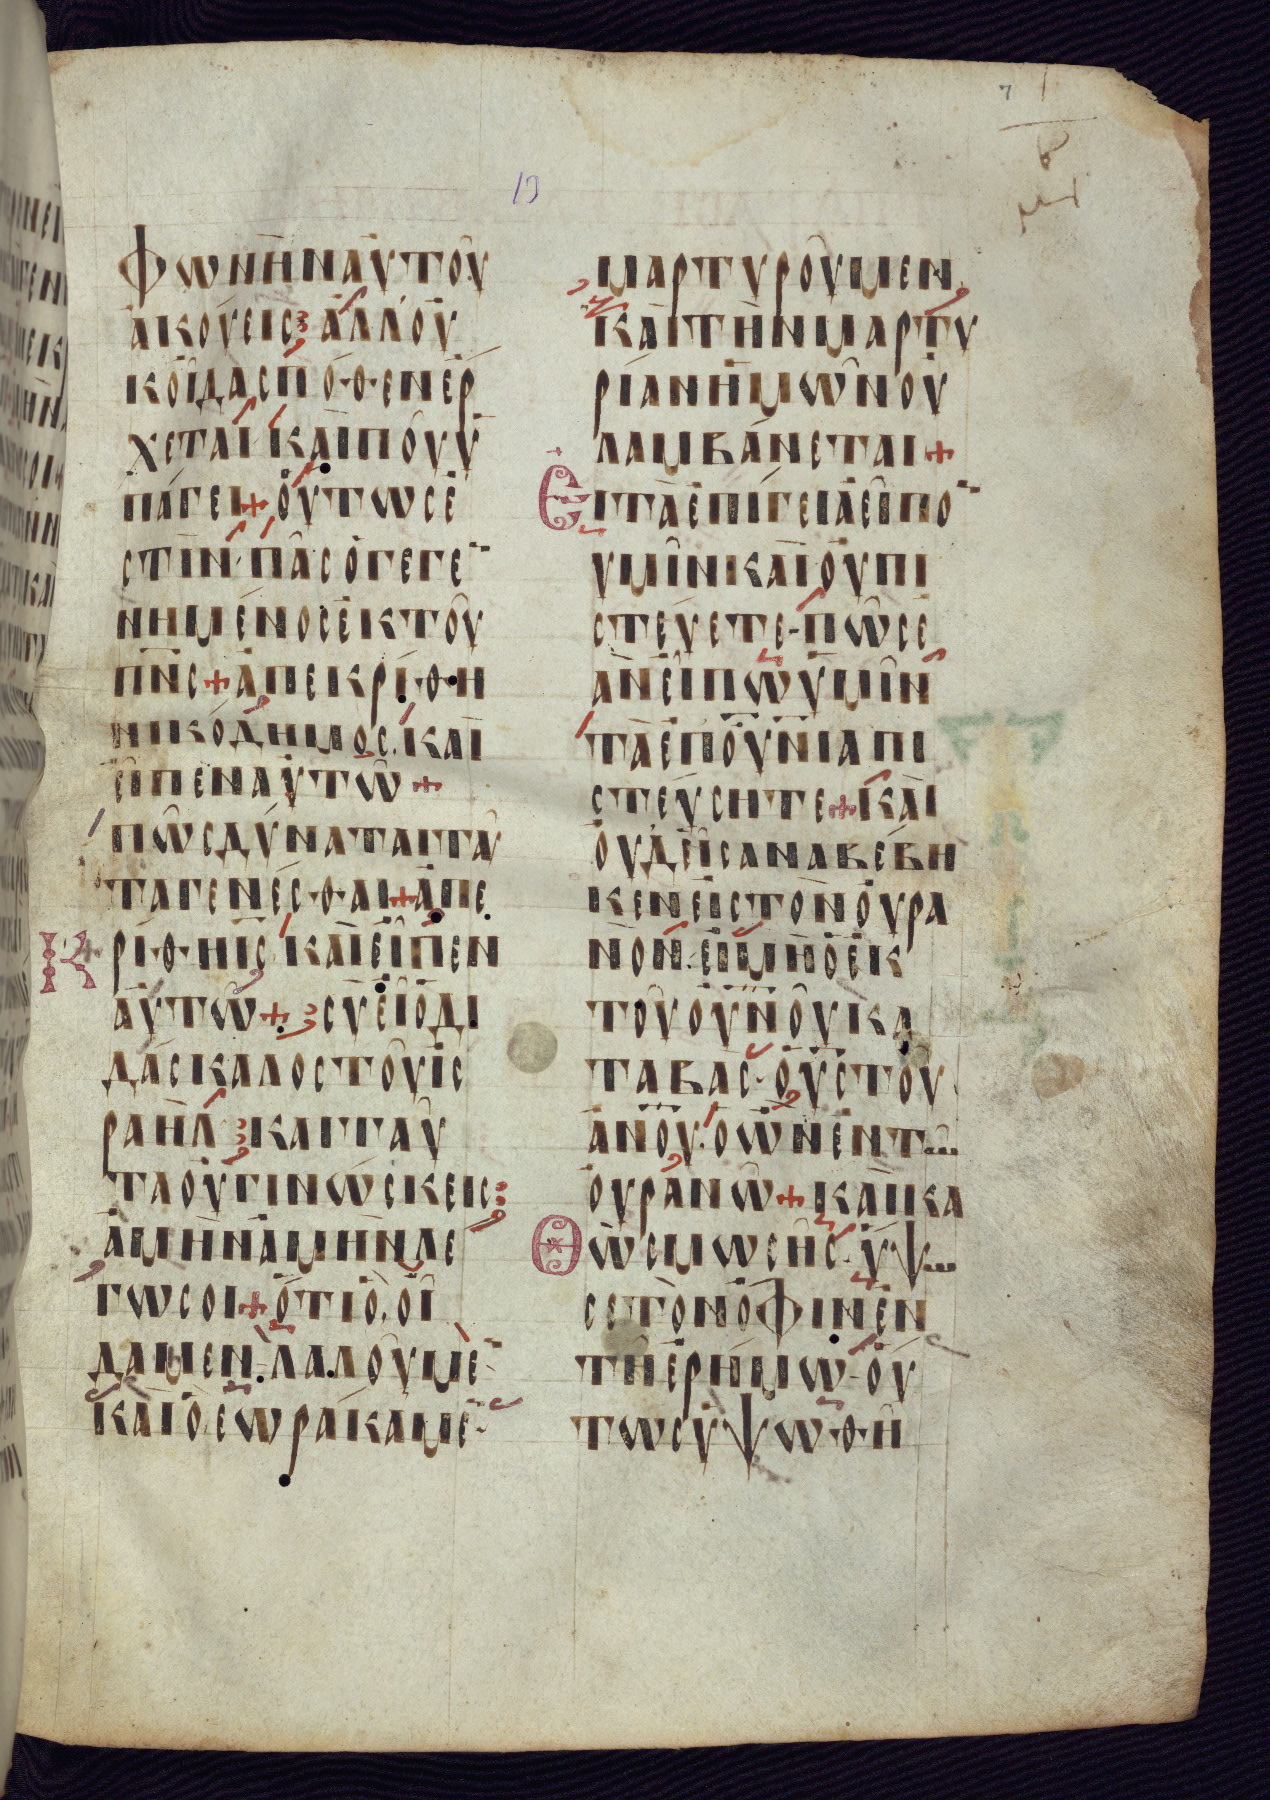 7
13
ΦΩΝΗΝΑΥΤΟΥ
ΑΚΟΥΕΙС ΑΛΛΟΥ
ΚΟΙΔΑСΠΟΘΕΝΕΡ
ΧΕΤΑΙ·ΚΑΙΠΟΥΥ
ΠΑΓΕΙ+ΟΥΤΩСΕ
СΤΙΝ·ΠΑСΟΓΕΓΕ̄
ΝΗΜΕΝΟСΕΚΤΟΥ
Π̅Ν̅С̅+ΑΠΕΚΡΙΘΗ
ΝΙΚΟΔΗΜΟС·ΚΑΙ
ΕΙΠΕΝΑΥΤΩ+
ΠΩСΔΥΝΑΤΑΙΤΑΥ
ΤΑΓΕΝΕСΘΑΙ+ΑΠΕ
ΚΡΙΘΗΙС ΚΑΙΕΙΠΕΝ
ΑΥΤΩ+СΥΕΙΟΔΙ
ΔΑСΚΑΛΟСΤΟΥΙС
ΡΑΗΛ ΚΑΙΤΑΥ
ΤΑΟΥΓΙΝΩСΚΕΙС
ΑΜΗΝΑΜΗΝΛΕ
ΓΩСΟΙ+ΟΤΙΟ·ΟΙ
ΔΑΜΕΝ·ΛΑΛΟΥΜΕ̄
ΚΑΙΟ·ΕΩΡΑΚΑΜΕ̄
ΜΑΡΤΥΡΟΥΜΕΝ·
ΚΑΙΤΗΝΜΑΡΤΥ
ΡΙΑΝΗΜΩΝΟΥ
ΛΑΜΒΑΝΕΤΑΙ+
ΕΙΤΑΕΠΙΓΕΙΑΕΙΠΟ̄
ΥΜΙΝΚΑΙΟΥΠΙ
СΤΕΥΕΤΕ·ΠΩСΕ
ΑΝΕΙΠΩΥΜΙΝ
ΤΑΕΠΟΥΝΙΑΠΙ
СΤΕΥСΗΤΕ+ΚΑΙ
ΟΥΔΕΙСΑΝΑΒΕΒΗ
ΚΕΝΕΙСΤΟΝΟΥΡΑ
ΝΟΝ·ΕΙΜΗΟΕΚ
ΤΟΥΟΥΝΟΥΚΑ
ΤΑΒΑС·ΟΥСΤΟΥ
ΑΝΟΥ·ΟΩΝΕΝΤΩ
ΟΥΡΑΝΩ+ΚΑΙΚΑ
ΘΩСΜΩСΗС·ΥΨΩ
СΕΤΟΝΟΦΙΝΕΝ
ΤΗΕΡΗΜΩ·ΟΥ
ΤΩСΥΨΩΘΗ